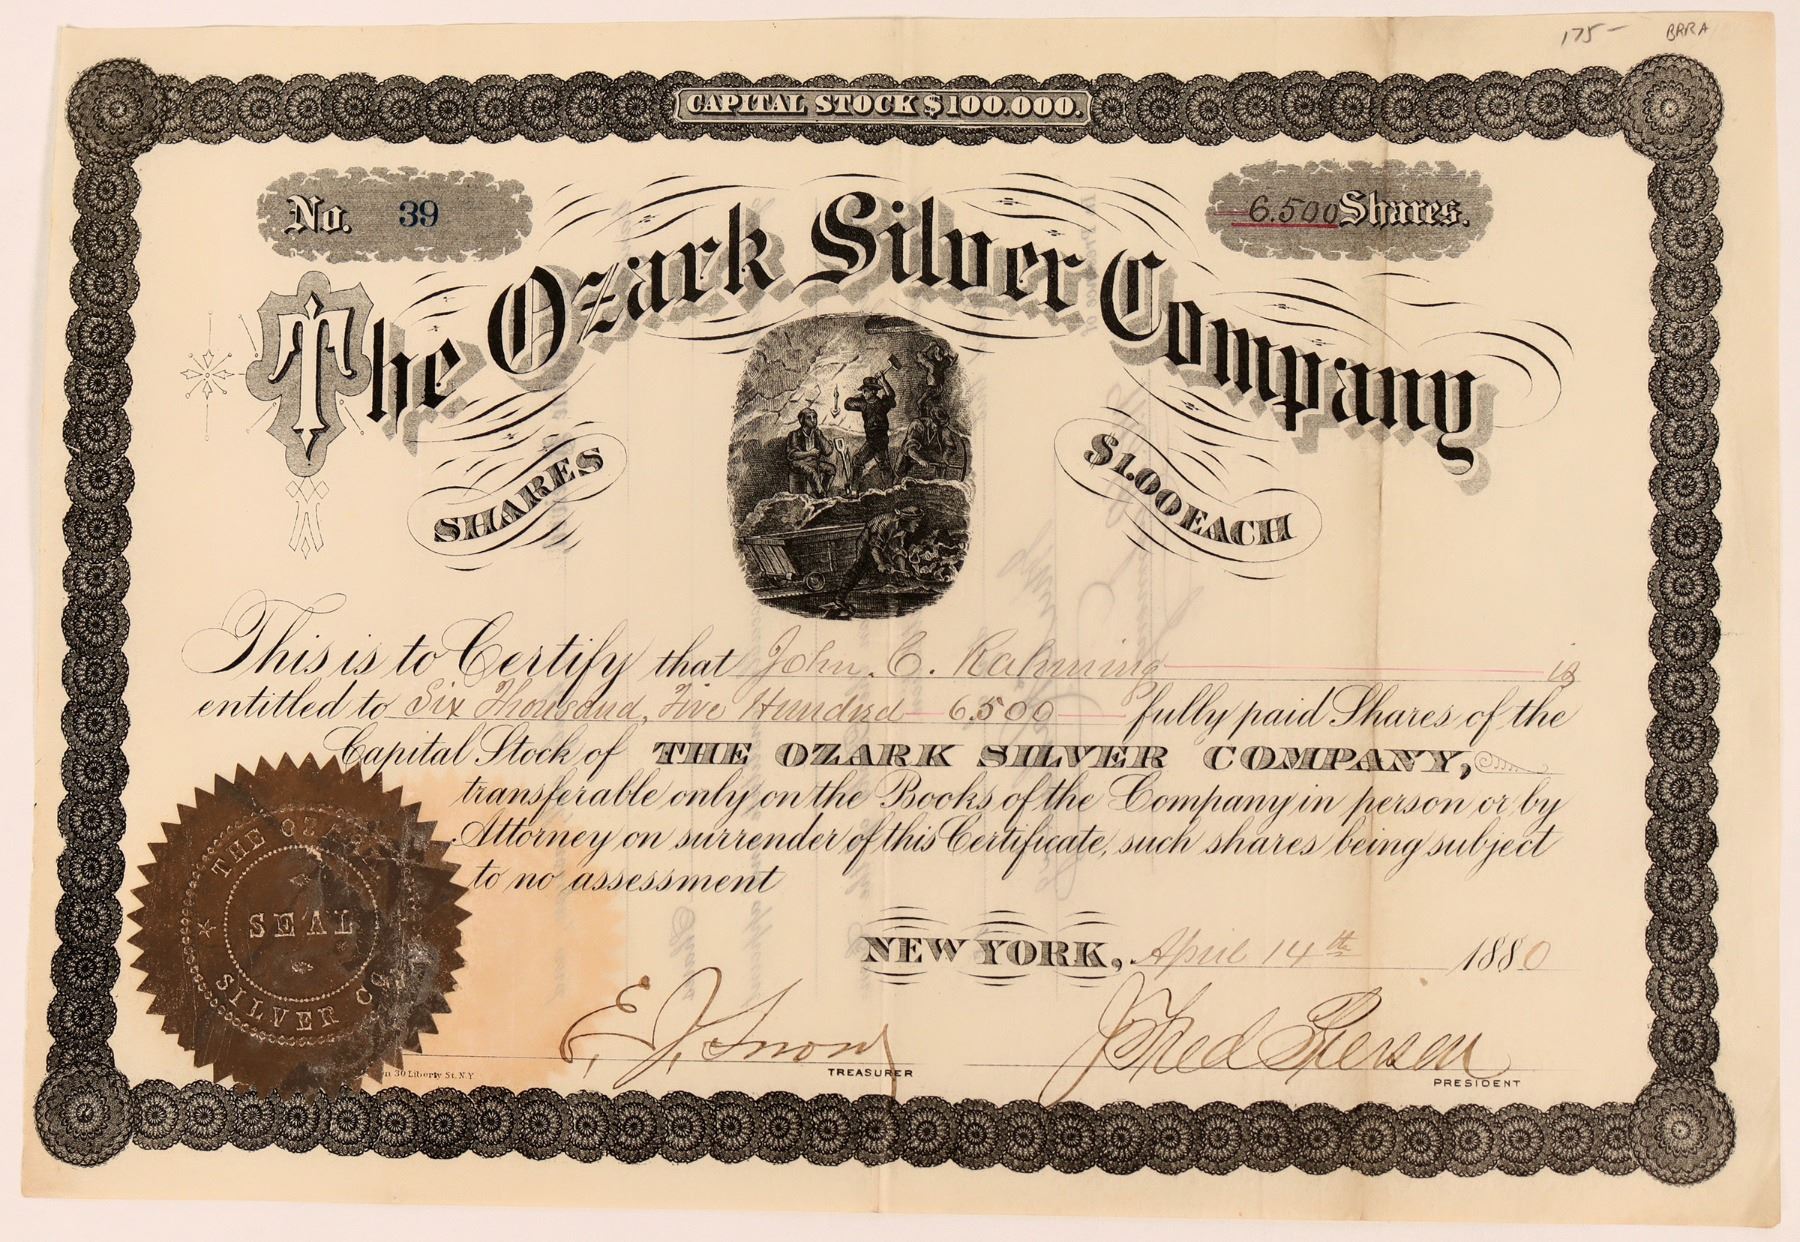 175- BRRA
CAPITAL STOCK $100.000.
No. 39
6.500 Shares.
The Ozark Silver Company
SHARES $1.00 EACH
This is to Certify that John. C. Rahming is
entitled to Six Thousand, Five Hundred 6.500 fully paid Shares of the
Capital Stock of THE OZARK SILVER COMPANY,
transferable only on the Books of the Company in person or by
Attorney on surrender of this Certificate, such shares being subject
to no assessment
NEW YORK, April 14th 1880
THE OZARK SILVER CO.
SEAL
E. J. Snow
TREASURER
J Fred Pierson
PRESIDENT
30 Liberty St. N.Y